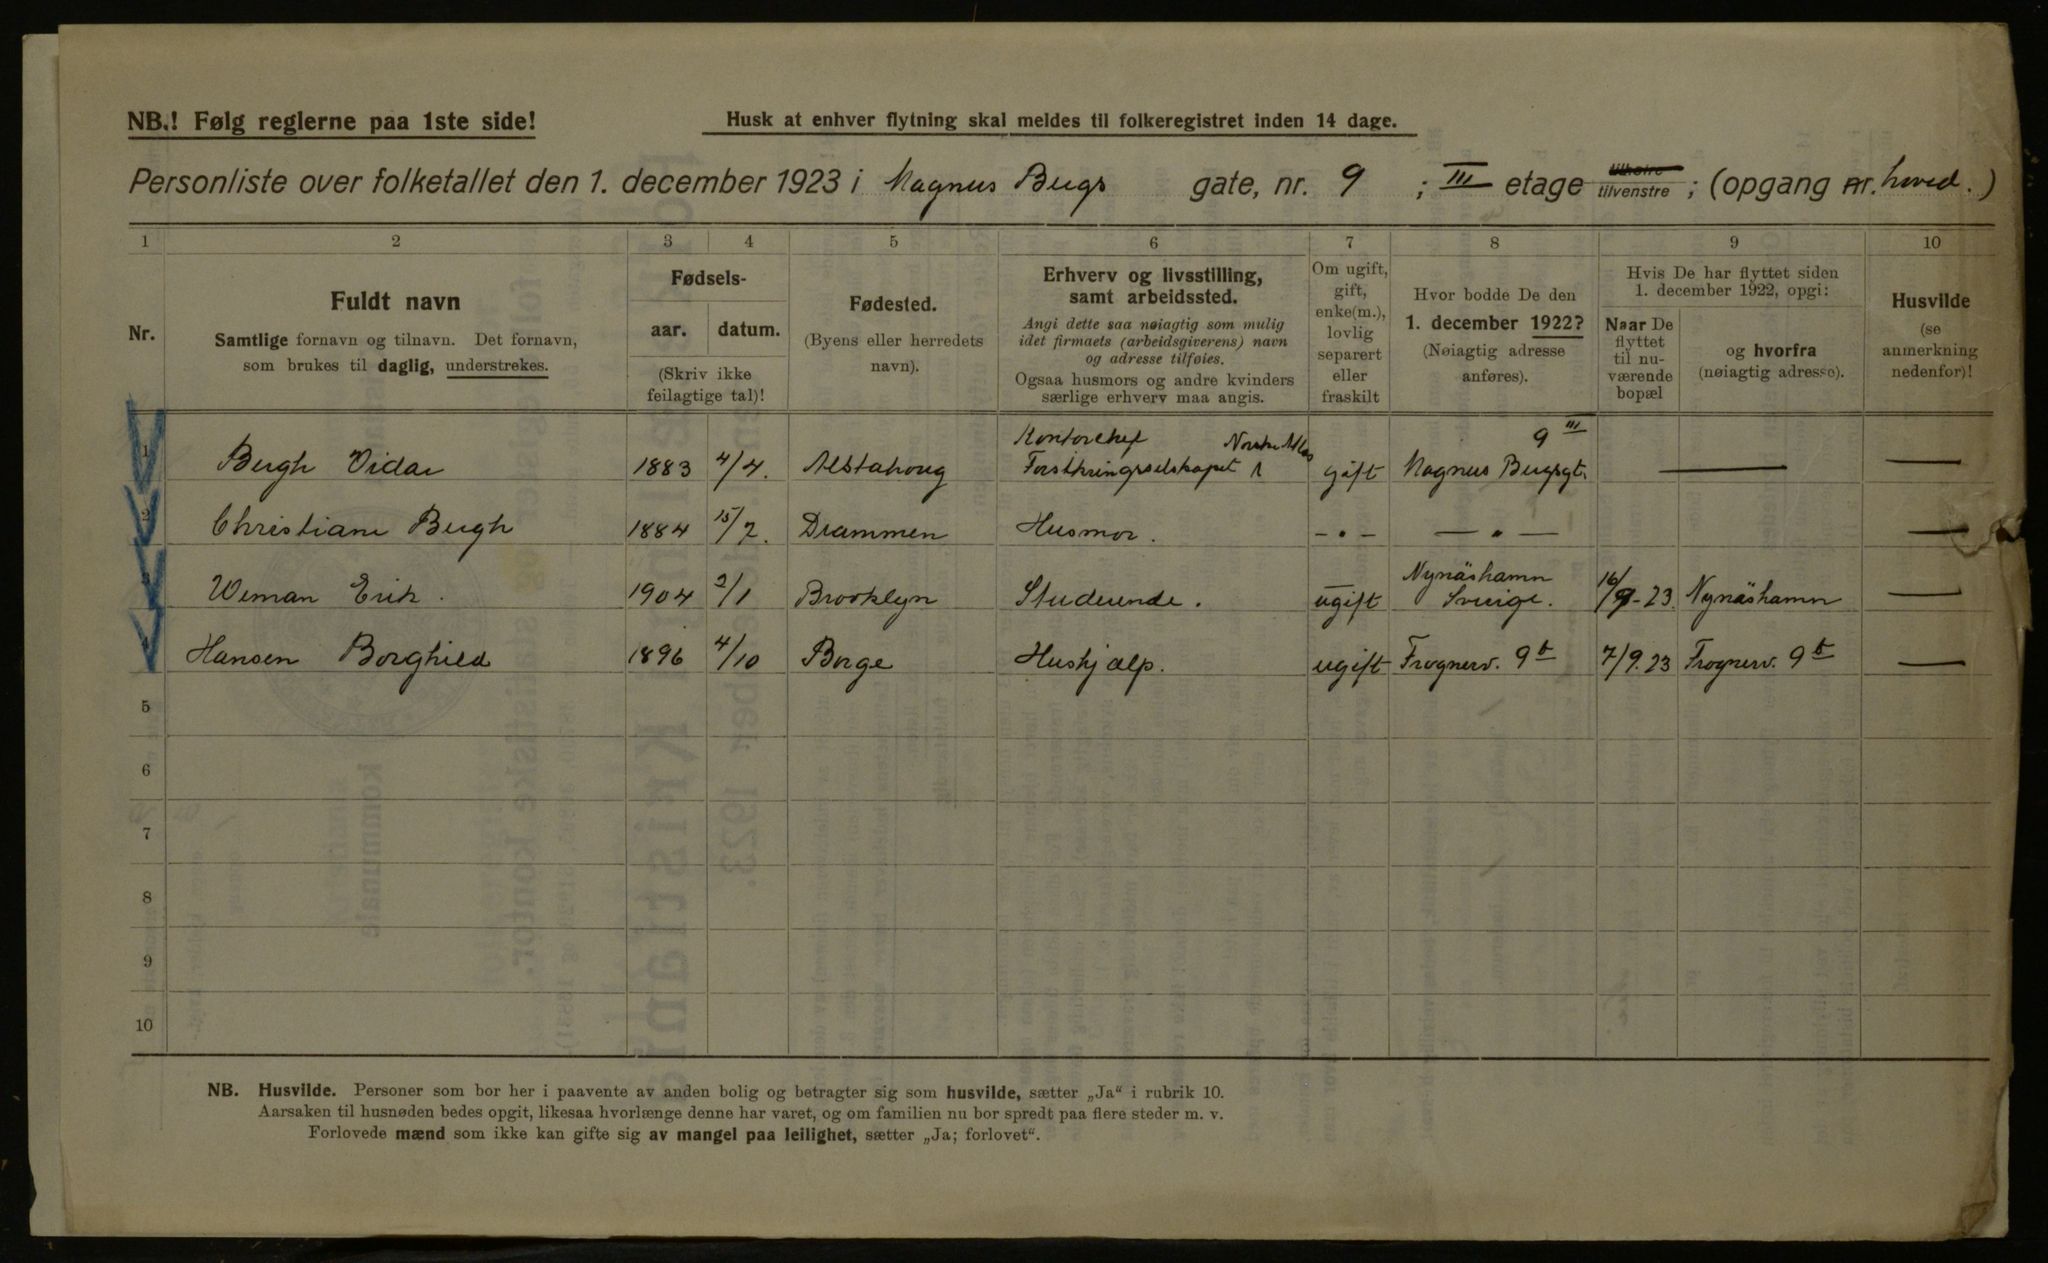 NB.! Følg reglerne paa 1ste side!
Husk at enhver flytning skal meldes til folkeregistret inden 14 dage.
Personliste over folketallet den 1. december 1923 i Magnus Bergs gate, nr. 9 ; III etage tilhøire tilvenstre ; (opgang nr. hoved.)
1 2 3 4 5 6 7 8 9 10
Nr.
Fuldt navn
Samtlige fornavn og tilnavn. Det fornavn,
som brukes til daglig, understrekes.
Fødsels-
aar. datum.
(Skriv ikke
feilagtige tal)!
Fødested.
(Byens eller herredets
navn).
Erhverv og livsstilling,
samt arbeidssted.
Angi dette saa nøiagtig som mulig
idet firmaets (arbeidsgiverens) navn
og adresse tilføies.
Ogsaa husmors og andre kvinders
særlige erhverv maa angis.
Om ugift,
gift,
enke(m.),
lovlig
separert
eller
fraskilt
Hvor bodde De den
1. december 1922?
(Nøiagtig adresse
anføres).
Hvis De har flyttet siden
1. december 1922, opgi:
Naar De
flyttet
til nu-
værende
bopæl
og hvorfra
(nøiagtig adresse).
Husvilde
(se
anmerkning
nedenfor)!
Kontorchef Norske Atlas 9 III
1 Bergh Vidar 1883 4/4. Alstahoug Forsikringsselskapet gift Magnus Bergsgt. — —
2 Christiane Bergh 1884 15/7. Drammen Husmor. -"- —"— —
3 Weman Erik. 1904 2/1 Brooklyn Studerende. ugift Nynäshamn Sverige. 16/9-23. Nynäshamn —
4 Hansen Borghild 1896 4/10 Borge Hushjælp. ugift Frognerv. 9b 7/9.23 Frognerv. 9b —
5
6
7
8
9
10
NB. Husvilde. Personer som bor her i paavente av anden bolig og betragter sig som husvilde, sætter „Ja“ i rubrik 10.
Aarsaken til husnøden bedes opgit, likesaa hvorlænge denne har varet, og om familien nu bor spredt paa flere steder m. v.
Forlovede mænd som ikke kan gifte sig av mangel paa leilighet, sætter „Ja; forlovet“.